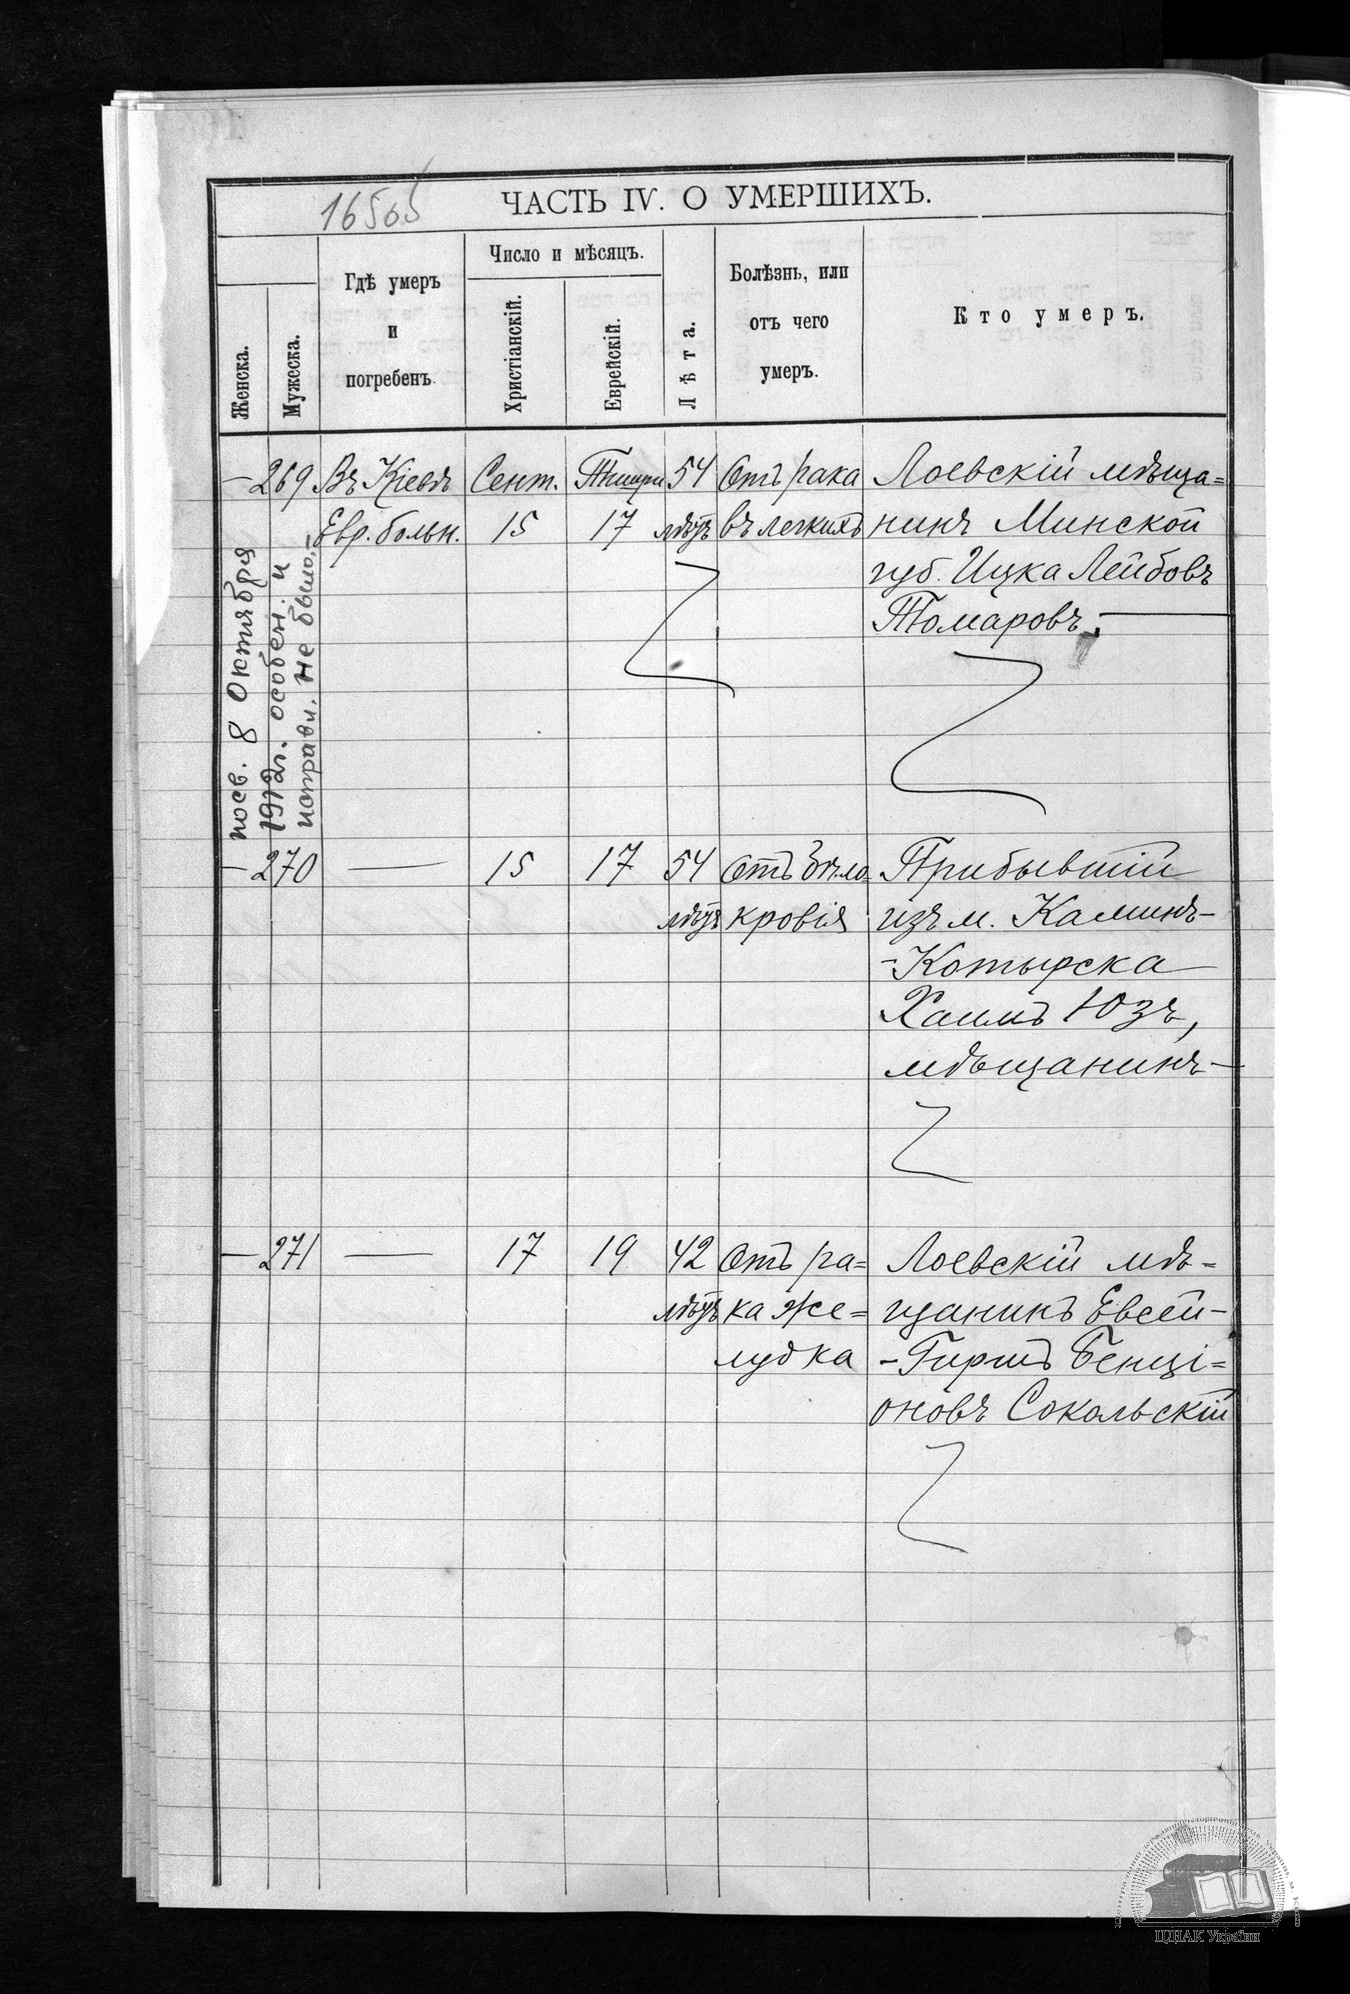 16505
ЧАСТЬ IV. О УМЕРШИХЪ.
Женска.
Мужеска.
Гдѣ умеръ
и
погребенъ.
Число и мѣсяцъ.
Христіанскій.
Еврейскій.
Лѣта.
Болѣзнь, или
отъ чего
умеръ.
Кто умеръ.
— 269 Въ Кіевѣ Сент. Тишри 54 Отъ рака Лоевскій мѣща=
Евр. больн. 15 17 лѣтъ въ легкихъ нинъ Минской
губ. Ицка Лейбовъ
Томаровъ. —
посв. 8 Октября
1912г. особен. и
исправл. не было.—
— 270 — 15 17 54 Отъ бѣло= Прибывшій
лѣтъ кровія изъ м. Каминъ-
-Котырска
Хаимъ Юзъ,
мѣщанинъ —
— 271 — 17 19 42 Отъ ра= Лоевскій мѣ=
лѣтъ ка же= щанинъ Евсей-
лудка -Гиршъ Бенці=
оновъ Сокольскій
ЦДІАК України